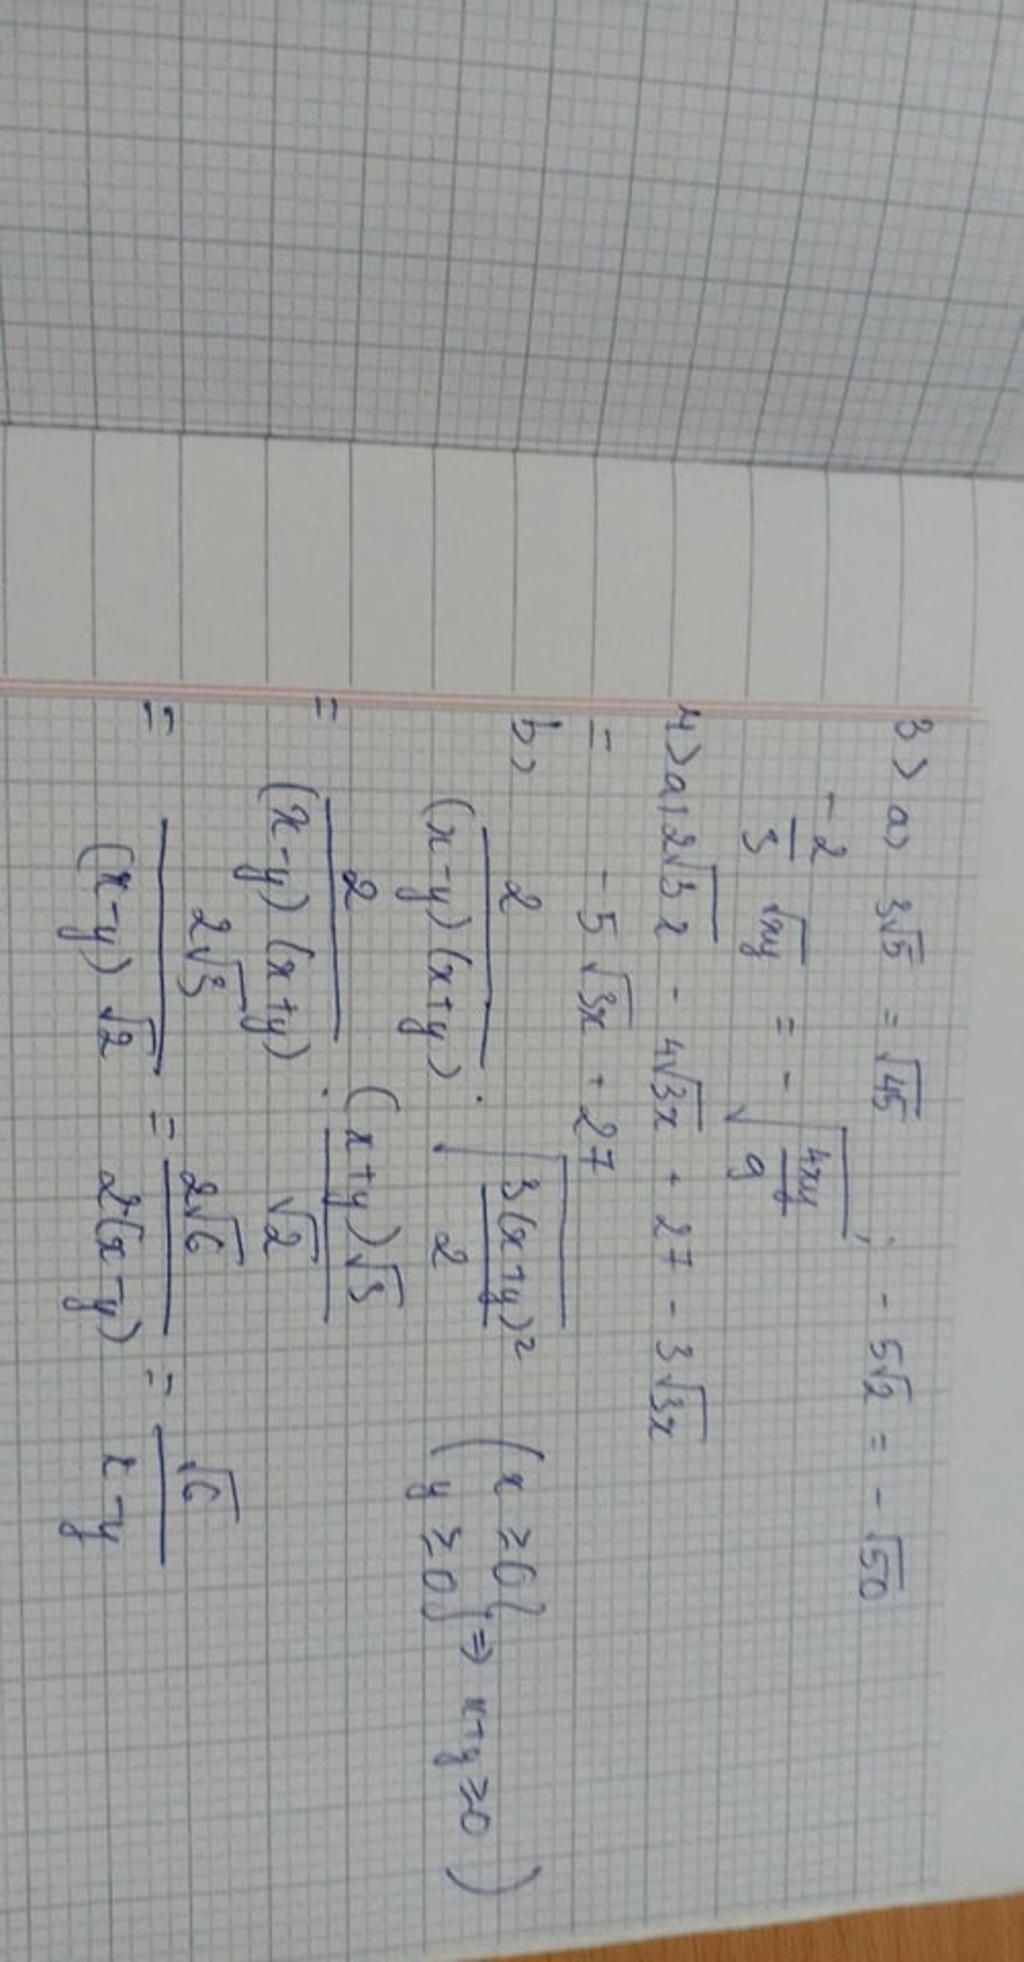 3> a> 3√5 = √45 ; - 5√2 = - √50
-2/3 √xy = - √(4xy/9)
4> a, 2√3x - 4√3x + 27 - 3√3x
= - 5√3x + 27
b> 2/((x-y)(x+y)) . √(3(x+y)²/2) (x ≥ 0, y ≥ 0} => x+y ≥ 0)
= 2/((x-y)(x+y)) . (x+y)√3/√2
= 2√3/((x-y)√2) = 2√6/(2(x-y)) = √6/(x-y)